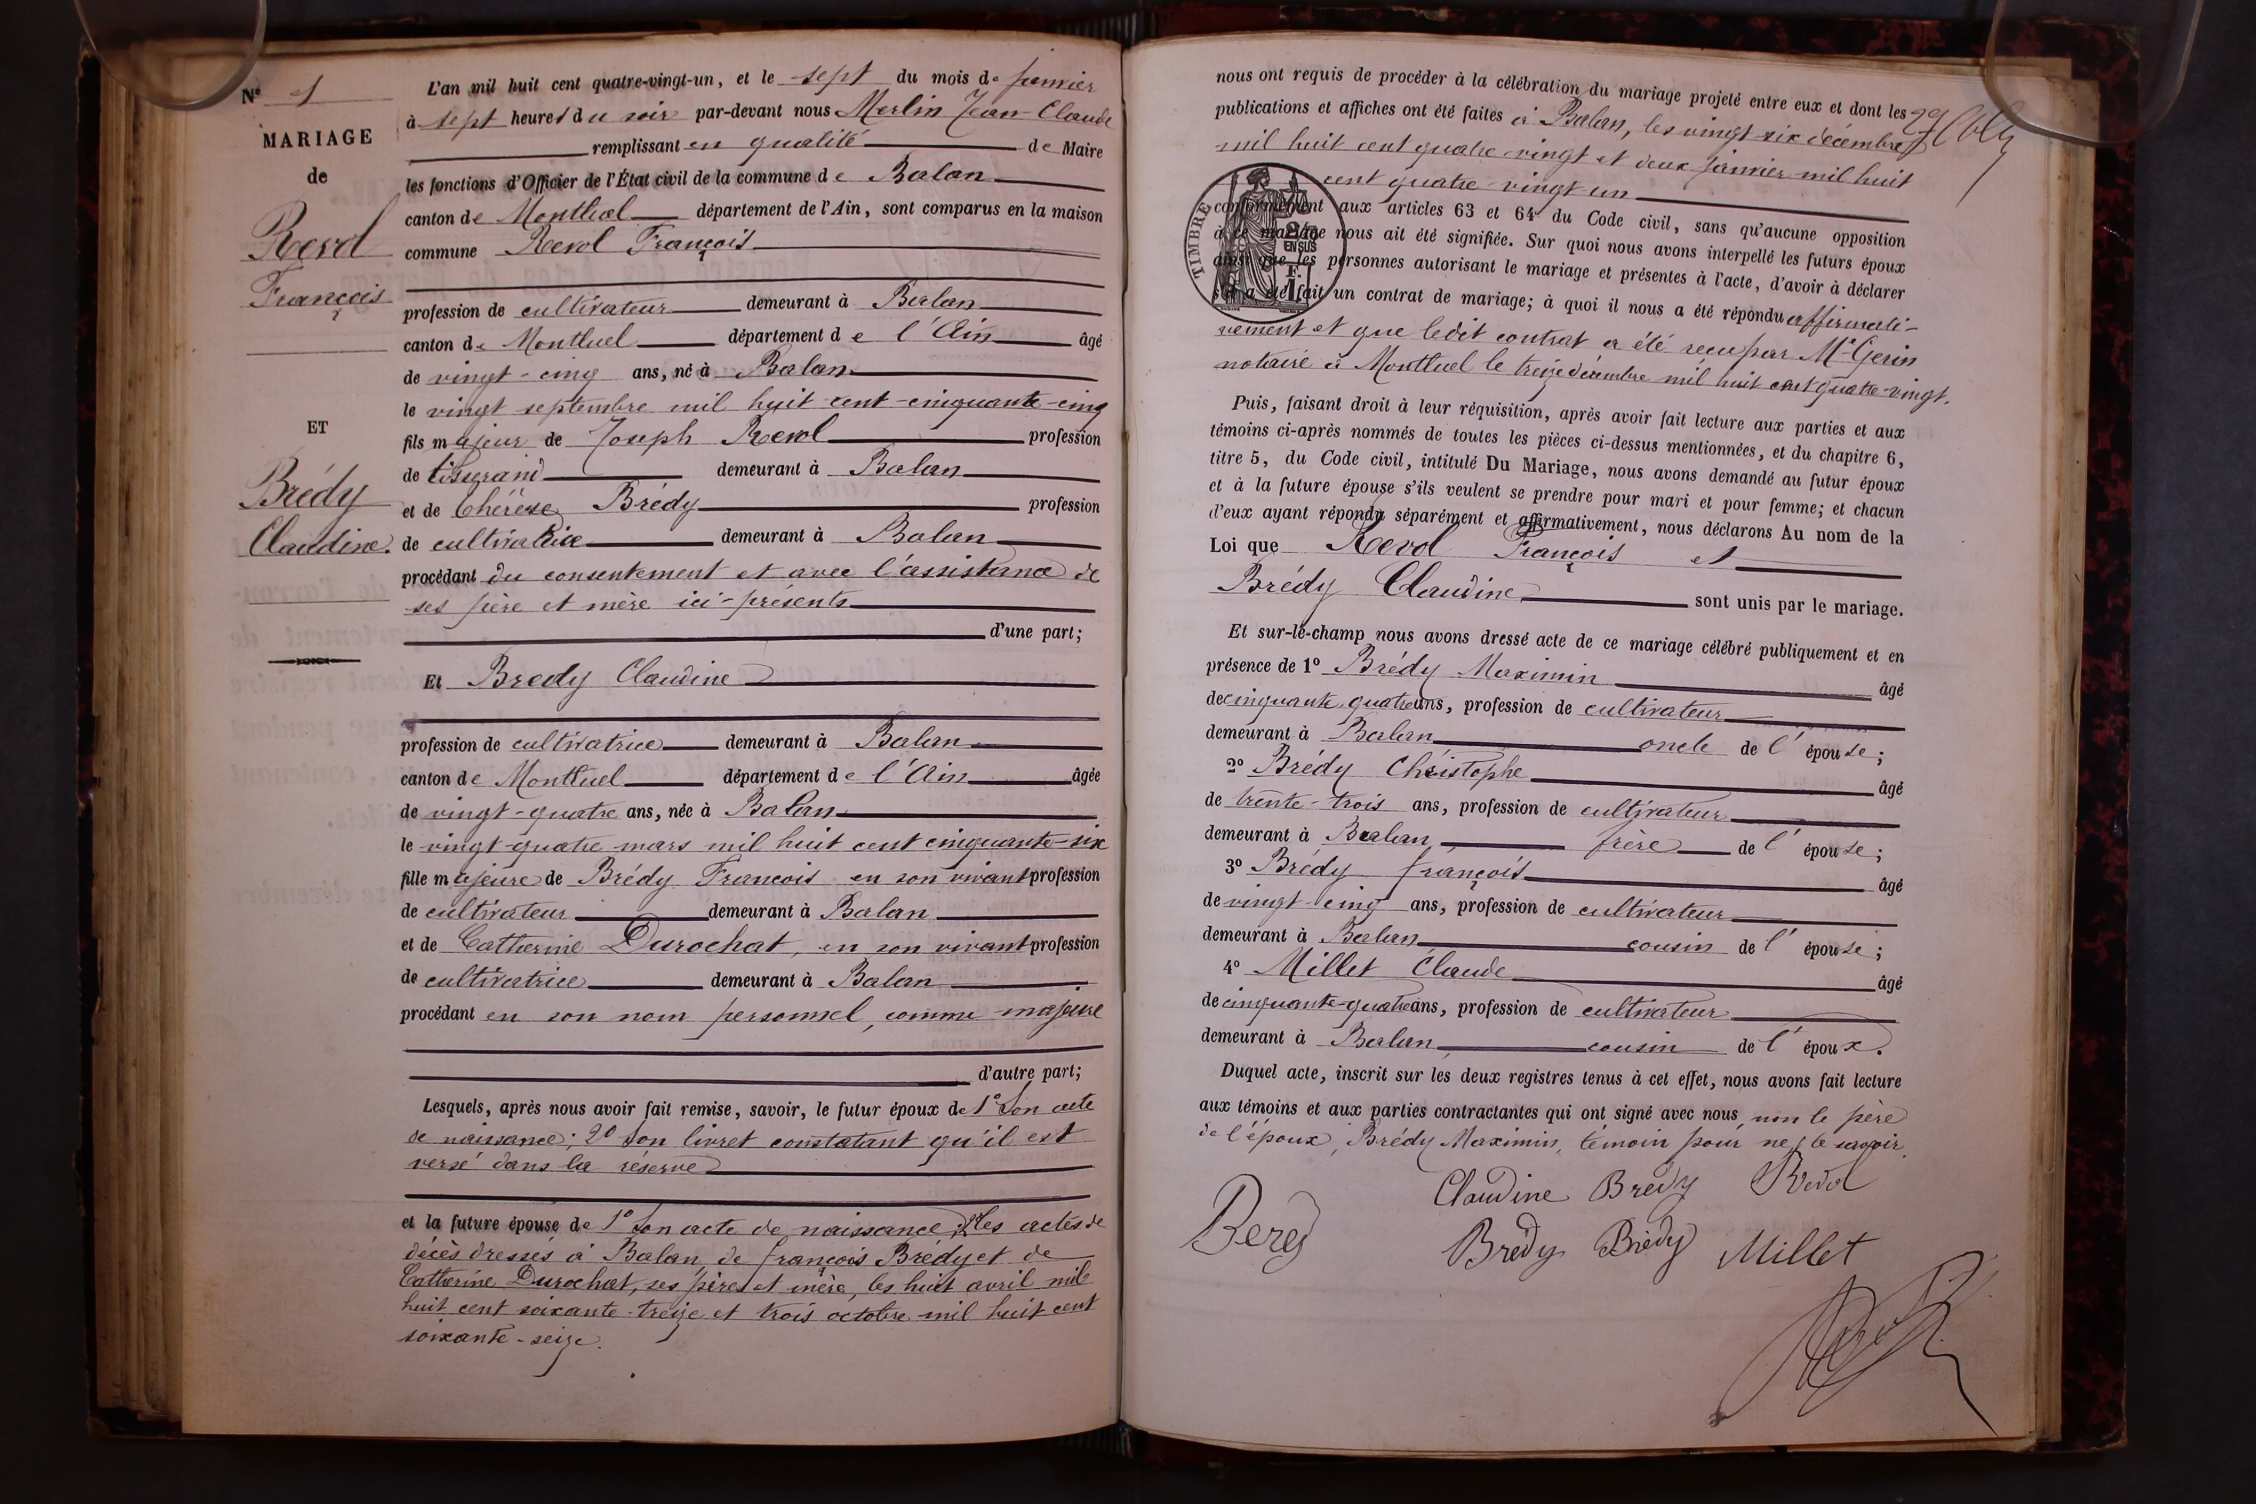 N° 1
MARIAGE
de
Revol
François
ET
Brédy
Claudine.
L'an mil huit cent quatre-vingt-un, et le sept du mois de janvier
à sept heures du soir par-devant nous Merlin Jean-Claude
remplissant en qualité de Maire
les fonctions d'Officier de l'État civil de la commune de Balan
canton de Montluel département de l'Ain, sont comparus en la maison
commune Revol François
profession de cultivateur demeurant à Balan
canton de Montluel département de l'Ain âgé
de vingt-cinq ans, né à Balan
le vingt septembre mil huit cent cinquante-cinq
fils majeur de Joseph Revol profession
de tisserand demeurant à Balan
et de Thérèse Brédy profession
de cultivatrice demeurant à Balan
procédant du consentement et avec l'assistance de
ses père et mère ici-présents
d'une part;
Et Bredy Claudine
profession de cultivatrice demeurant à Balan
canton de Montluel département de l'Ain âgée
de vingt-quatre ans, née à Balan
le vingt-quatre mars mil huit cent cinquante-six
fille majeure de Brédy François en son vivant profession
de cultivateur demeurant à Balan
et de Catherine Durochat, en son vivant profession
de cultivatrice demeurant à Balan
procédant en son nom personnel, comme majeure
d'autre part;
Lesquels, après nous avoir fait remise, savoir, le futur époux de 1° Son acte
de naissance; 2° Son livret constatant qu'il est
versé dans la réserve
et la future épouse de 1° Son acte de naissance; 2° les actes de
décès dressés à Balan de françois Brédy et de
Catherine Durochat, ses père et mère, les huit avril mil
huit cent soixante-treize et trois octobre mil huit cent
soixante-seize.
nous ont requis de procéder à la célébration du mariage projeté entre eux et dont les
publications et affiches ont été faites à Balan, les vingt-six décembre
mil huit cent quatre-vingt et deux janvier mil huit
cent quatre-vingt un
conformément aux articles 63 et 64 du Code civil, sans qu'aucune opposition
à ce mariage nous ait été signifiée. Sur quoi nous avons interpellé les futurs époux
ainsi que les personnes autorisant le mariage et présentes à l'acte, d'avoir à déclarer
s'il a été fait un contrat de mariage; à quoi il nous a été répondu affirmati-
vement et que ledit contrat a été reçu par Me Gerin
notaire à Montluel le treize décembre mil huit cent quatre-vingt.
TIMBRE
2/10
EN SUS
F.
1
Puis, faisant droit à leur réquisition, après avoir fait lecture aux parties et aux
témoins ci-après nommés de toutes les pièces ci-dessus mentionnées, et du chapitre 6,
titre 5, du Code civil, intitulé Du Mariage, nous avons demandé au futur époux
et à la future épouse s'ils veulent se prendre pour mari et pour femme; et chacun
d'eux ayant répondu séparément et affirmativement, nous déclarons Au nom de la
Loi que Revol François et
Brédy Claudine sont unis par le mariage.
Et sur-le-champ nous avons dressé acte de ce mariage célébré publiquement et en
présence de 1° Brédy Maximin âgé
de cinquante-quatre ans, profession de cultivateur
demeurant à Balan oncle de l'épouse;
2° Brédy Christophe âgé
de trente-trois ans, profession de cultivateur
demeurant à Balan frère de l'épouse;
3° Brédy françois âgé
de vingt-cinq ans, profession de cultivateur
demeurant à Balan cousin de l'épouse;
4° Millet Claude âgé
de cinquante-quatre ans, profession de cultivateur
demeurant à Balan cousin de l'époux.
Duquel acte, inscrit sur les deux registres tenus à cet effet, nous avons fait lecture
aux témoins et aux parties contractantes qui ont signé avec nous non le père
de l'époux, Brédy Maximin, témoin pour ne le savoir.
Claudine Bredy Revol
Brédy Brédy Millet